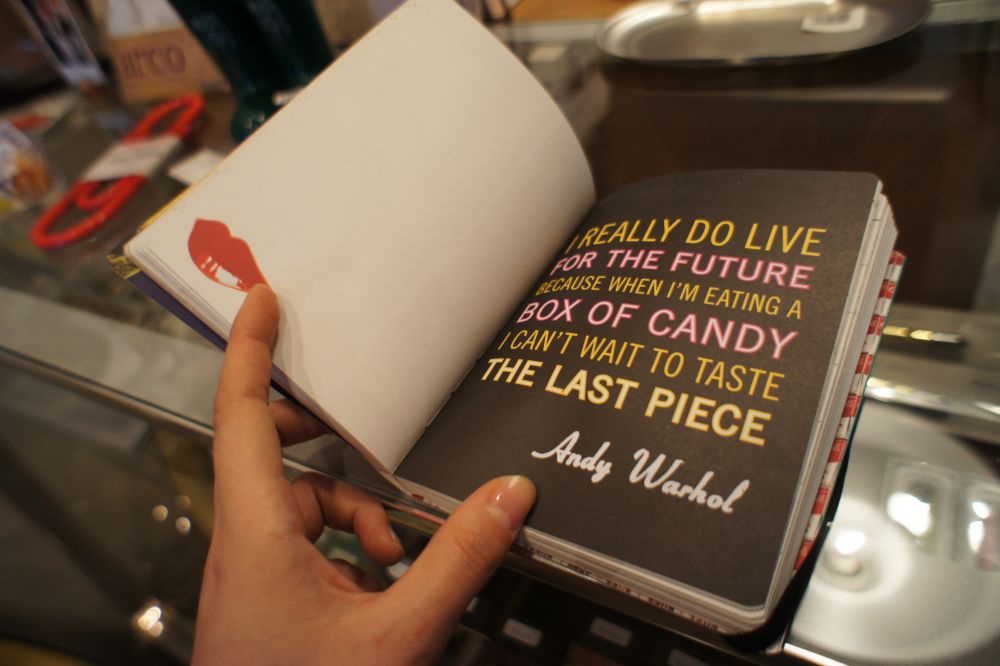 I REALLY DO LIVE
FOR THE FUTURE
BECAUSE WHEN I'M EATING A
BOX OF CANDY
I CAN'T WAIT TO TASTE
THE LAST PIECE
Andy Warhol